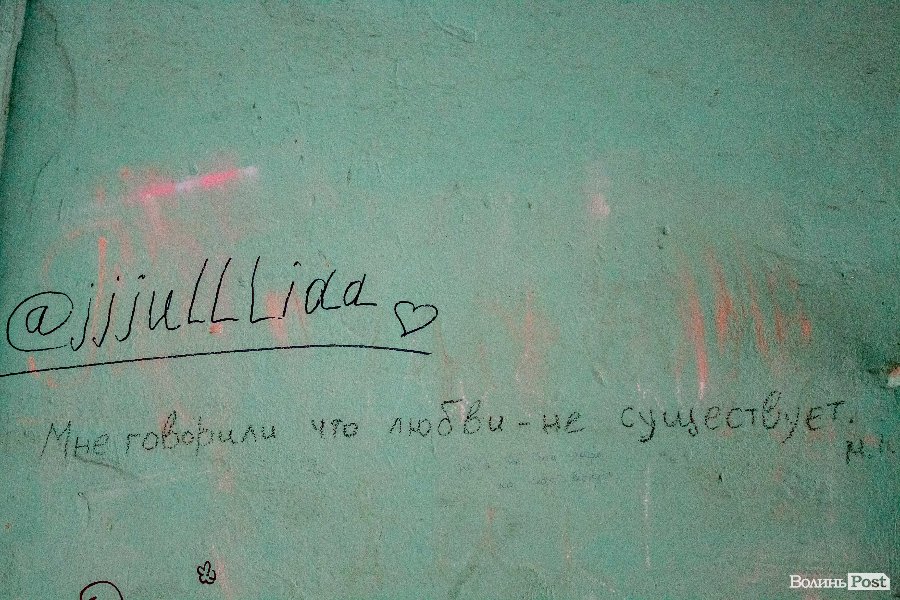 @jjjulllidd
Мне говорили что любви - не существует.
ВолиньPost